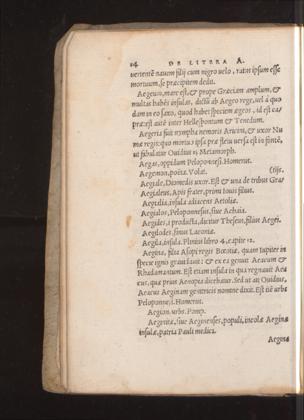 14 DE LITERA A.
uertentē nauem filij cum nigro uelo, ratus ipsum esse
mortuum, se præcipitem dedit.
Aegeum, mare est, & prope Græciam amplum, &
multas habēs insulas, dictū ab Aegeo rege, uel á quo
dam in eo saxo, quod habet speciem ægos, id est ca
præ: est autē inter Hellespontum & Tenedum.
Aegeria fuit nympha nemoris Aricini, & uxor Nu
mæ regis: quo mortuo ipsa præ fletu uersa est in fontē,
ut fabulatur Ouidius Metamorph.
Aegas, oppidum Peloponesi. Homerus.
Aegemon, poëta. Volat. (tijs.
Aegiale, Diomedis uxor. Est & una de tribus Gra/
Aegialeus, Apis frater, primi louis filius.
Aegialia, insula adiacens Aetolia.
Aegialos, Peloponnesus, siue Achaia.
Aegides, i producta, dicitur Theseus, filius Aegei.
Aegilodes, sinus Laconiæ.
Aegila, insula. Plinius libro 4, capite 12.
Aegina, filia Asopi regis Bœotiæ, quam Iupiter in
specie ignis grauidauit: & ex ea genuit Aeacum &
Rhadamantum. Est etiam insula in qua regnauit Aea
cus, quæ prius Aenopia dicebatur. Sed ut ait Ouidius,
Aeacus Aeginam genitricis nomine dixit. Est itē urbs
Peloponnesi. Homerus.
Aegion, urbs. Pomp.
Aeginitæ, siue Aeginenses, populi, incolæ Aeginæ
insulæ, patria Pauli medici.
Aeginæ